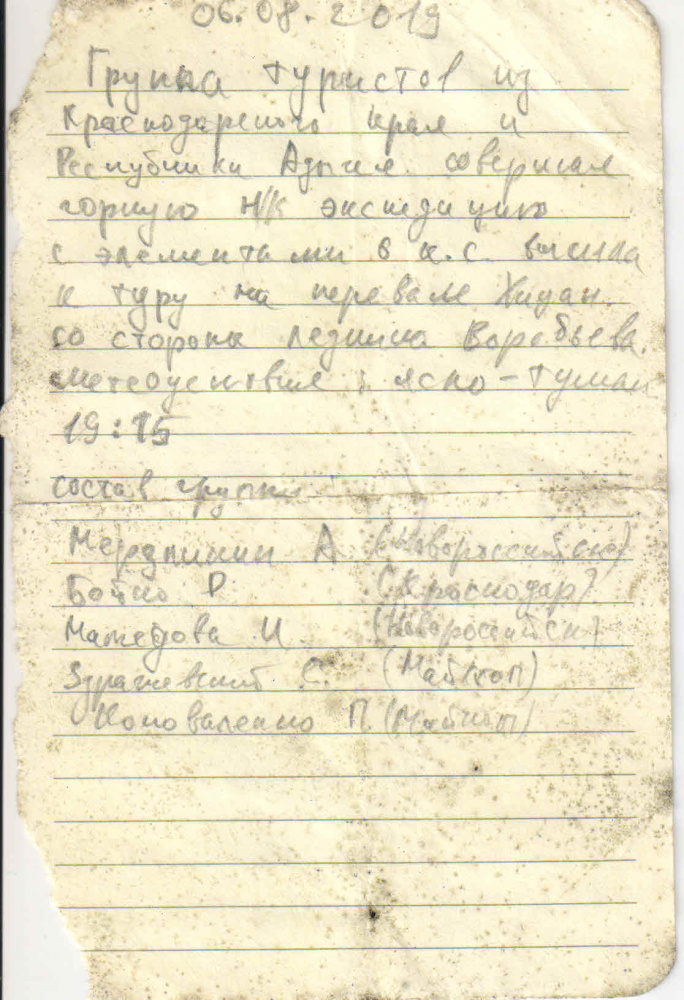 06.08.2019
Группа туристов из
Краснодарского края и
Республики Адыгея совершая
горную н/к экспедицию
с элементами 6 к.с. вышла
к туру на перевале
со стороны ледника Воробьева.
метеоусловия: ясно - туман
19:15
состав группы
А (Новороссийск)
Бойко Р (Краснодар)
Мамедова И. (Новороссийск)
Здрагиевский С. (Майкоп)
Коноваленко П. (Майкоп)